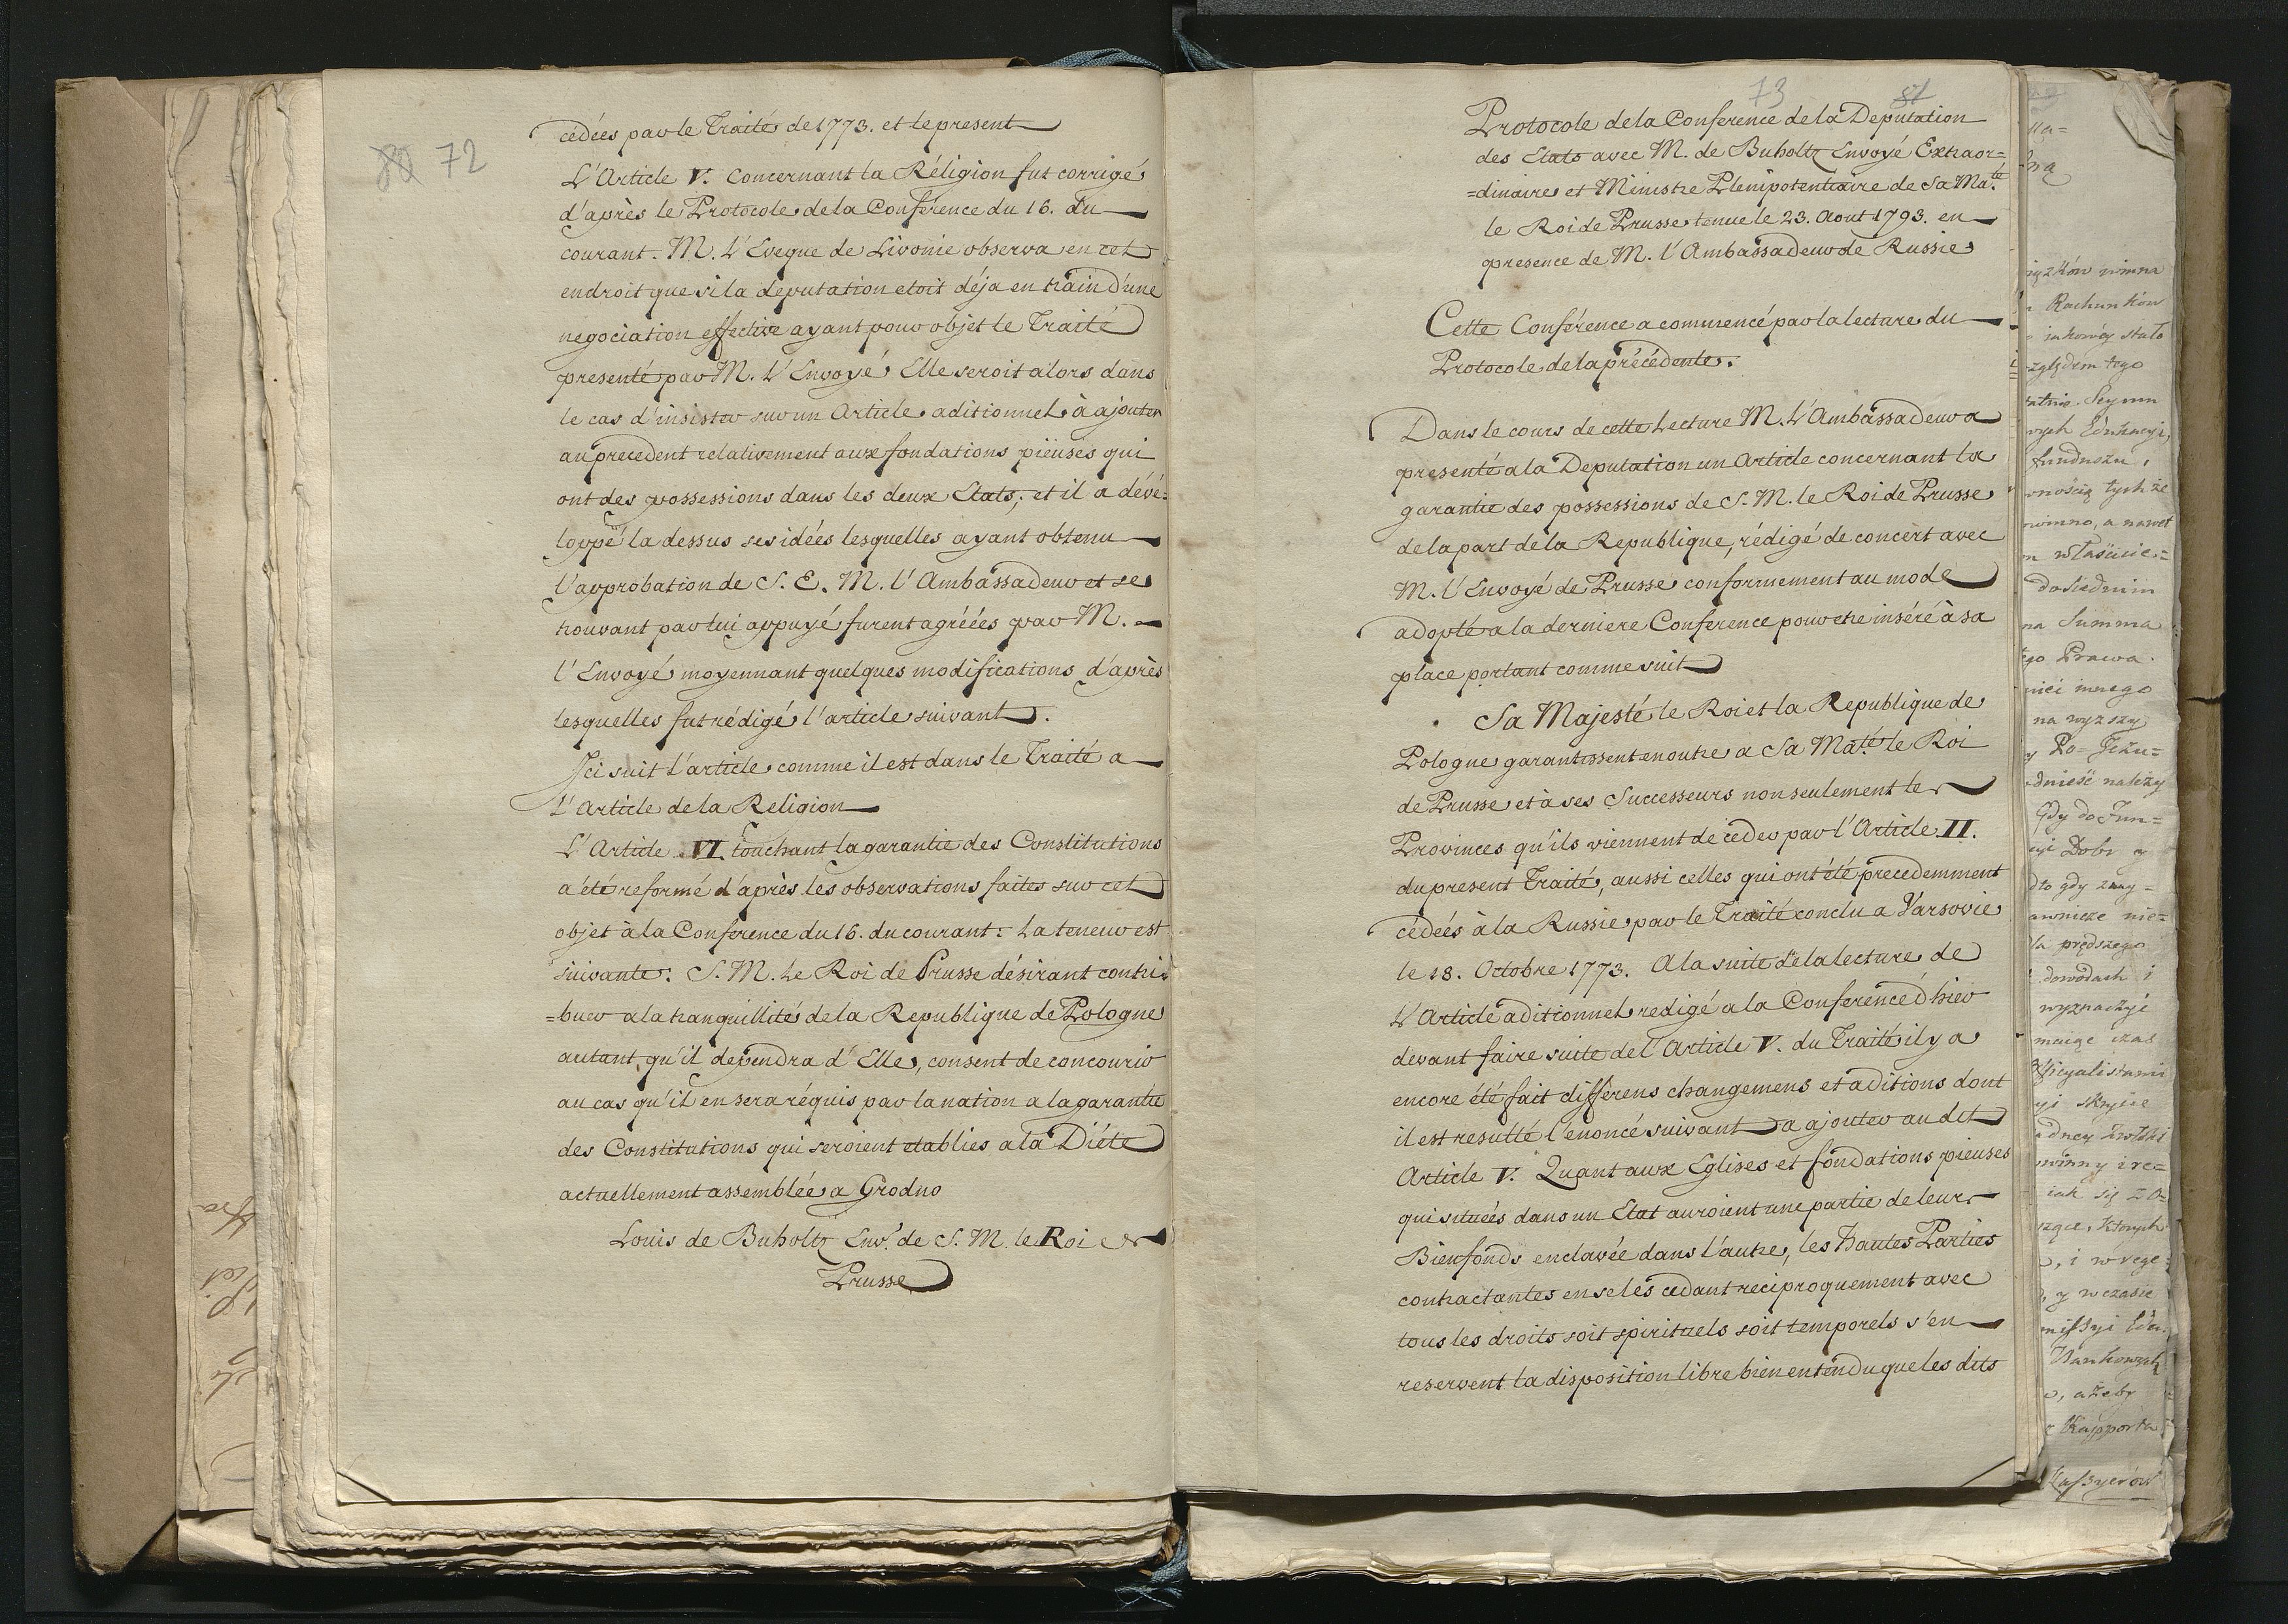 72
cédées par le Traité de 1773. et le present
L'Article V. Concernant la Réligion fut corrigé
d'après le Protocole de la Conférence du 16. du
courant. M. L'Eveque de Livonie observa en cet
endroit que si la députation etoit déja en train d'une
negociation effective ayant pour objet le Traité
presenté par M. L'Envoyé Elle seroit alors dans
le cas d'insister sur un Article aditionnel à ajouter
au precedent relativement aux fondations piëuses qui
ont des possessions dans les deux Etats; et il a dévé=
loppé la dessus ses idées lesquelles ayant obtenu
l'approbation de S. E. M. l'Ambassadeur et se
trouvant par lui appuyé furent agréées par M.
l'Envoyé moyennant quelques modifications d'après
lesquelles fut rédigé l'article suivant.
Ici suit l'article comme il est dans le Traité a
L'Article de la Religion
L'Article VI. touchant la garantie des Constitutions
a été reformé d'après les observations faites sur cet
objet à la Conférence du 16. du courant. La teneur est
suivante: S. M. Le Roi de Prusse désirant contri=
=buer a la tranquillité de la Republique de Pologne
autant qu'il dependra d'Elle, consent de concourir
au cas qu'il en sera réquis par la nation a la garantie
des Constitutions qui seroient etablies a la Diéte
actuellement assemblée a Grodno
Louis de Buholtz Env. de S. M. le Roi de
Prusse
73 81
Protocole de la Conference de la Deputation
des Etats avec M. de Buholtz Envoyé Extraor=
=dinaire et Ministre Plenipotentiaire de Sa Ma.té
le Roi de Prusse tenue le 23. Aout 1793. en
presence de M. l'Ambassadeur de Russie
Cette Conférence a commencé par la lecture du
Protocole de la précédente.
Dans le cours de cette Lecture M. L'Ambassadeur a
presenté a la Deputation un Article concernant la
garantie des possessions de S. M. le Roi de Prusse
de la part de la Republique, rédigé de concert avec
M. l'Envoyé de Prusse conformement au mode
adopté a la derniere Conference pour etre inséré à sa
place portant comme suit
Sa Majesté le Roi et la Republique de
Pologne garantissent en outre a Sa Ma.té le Roi
de Prusse et à ses Successeurs non seulement les
Provinces qu'ils viennent de ceder par l'Article II.
du present Traité, aussi celles qui ont été precedemment
cédées à la Russie par le Traité conclu a Varsovie
le 18. Octobre 1773. A la suite de la lecture de
L'Article aditionnel redigé a la Conference d'hier
devant faire suite de l'Article V. du Traité il y a
encore été fait différens changemens et aditions dont
il est resulté l'enoncé suivant a ajouter au dit
Article V. Quant aux Eglises et fondations pieuses
qui situées dans un Etat auroient une partie de leurs
Bienfonds enclavée dans l'autre, les Hautes Parties
contractantes en se les cedant reciproquement avec
tous les droits soit spirituels soit temporels s'en
reservent la disposition libre bien entendu que les dits
winna
Rachunków
stało
względem tego
Seymu
Edukacyi,
funduszu,
tychże
powinno, a nawet
Summa
Prawa
innego
na wyzszy
należy
Gdy do Fun=
Dobr
gdy
prędszego
dowodach i
czas
Officyalistami
iak się
których
w czasie
ażeby
Kassyerów